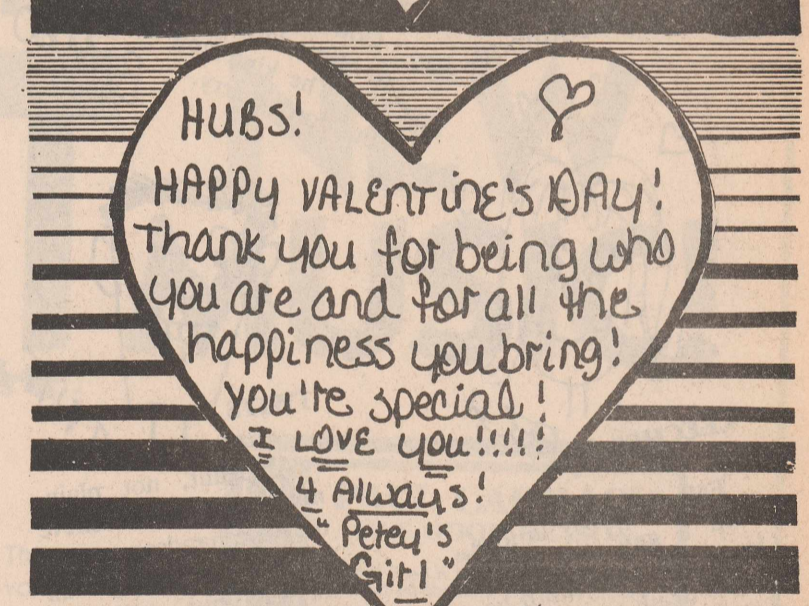 HUBS!
HAPPY VALENTINE'S DAY!
Thank you for being who
you are and for all the
happiness you bring!
you're special!
I LOVE you!!!!!
4 Always!
"Petey's
Girl"